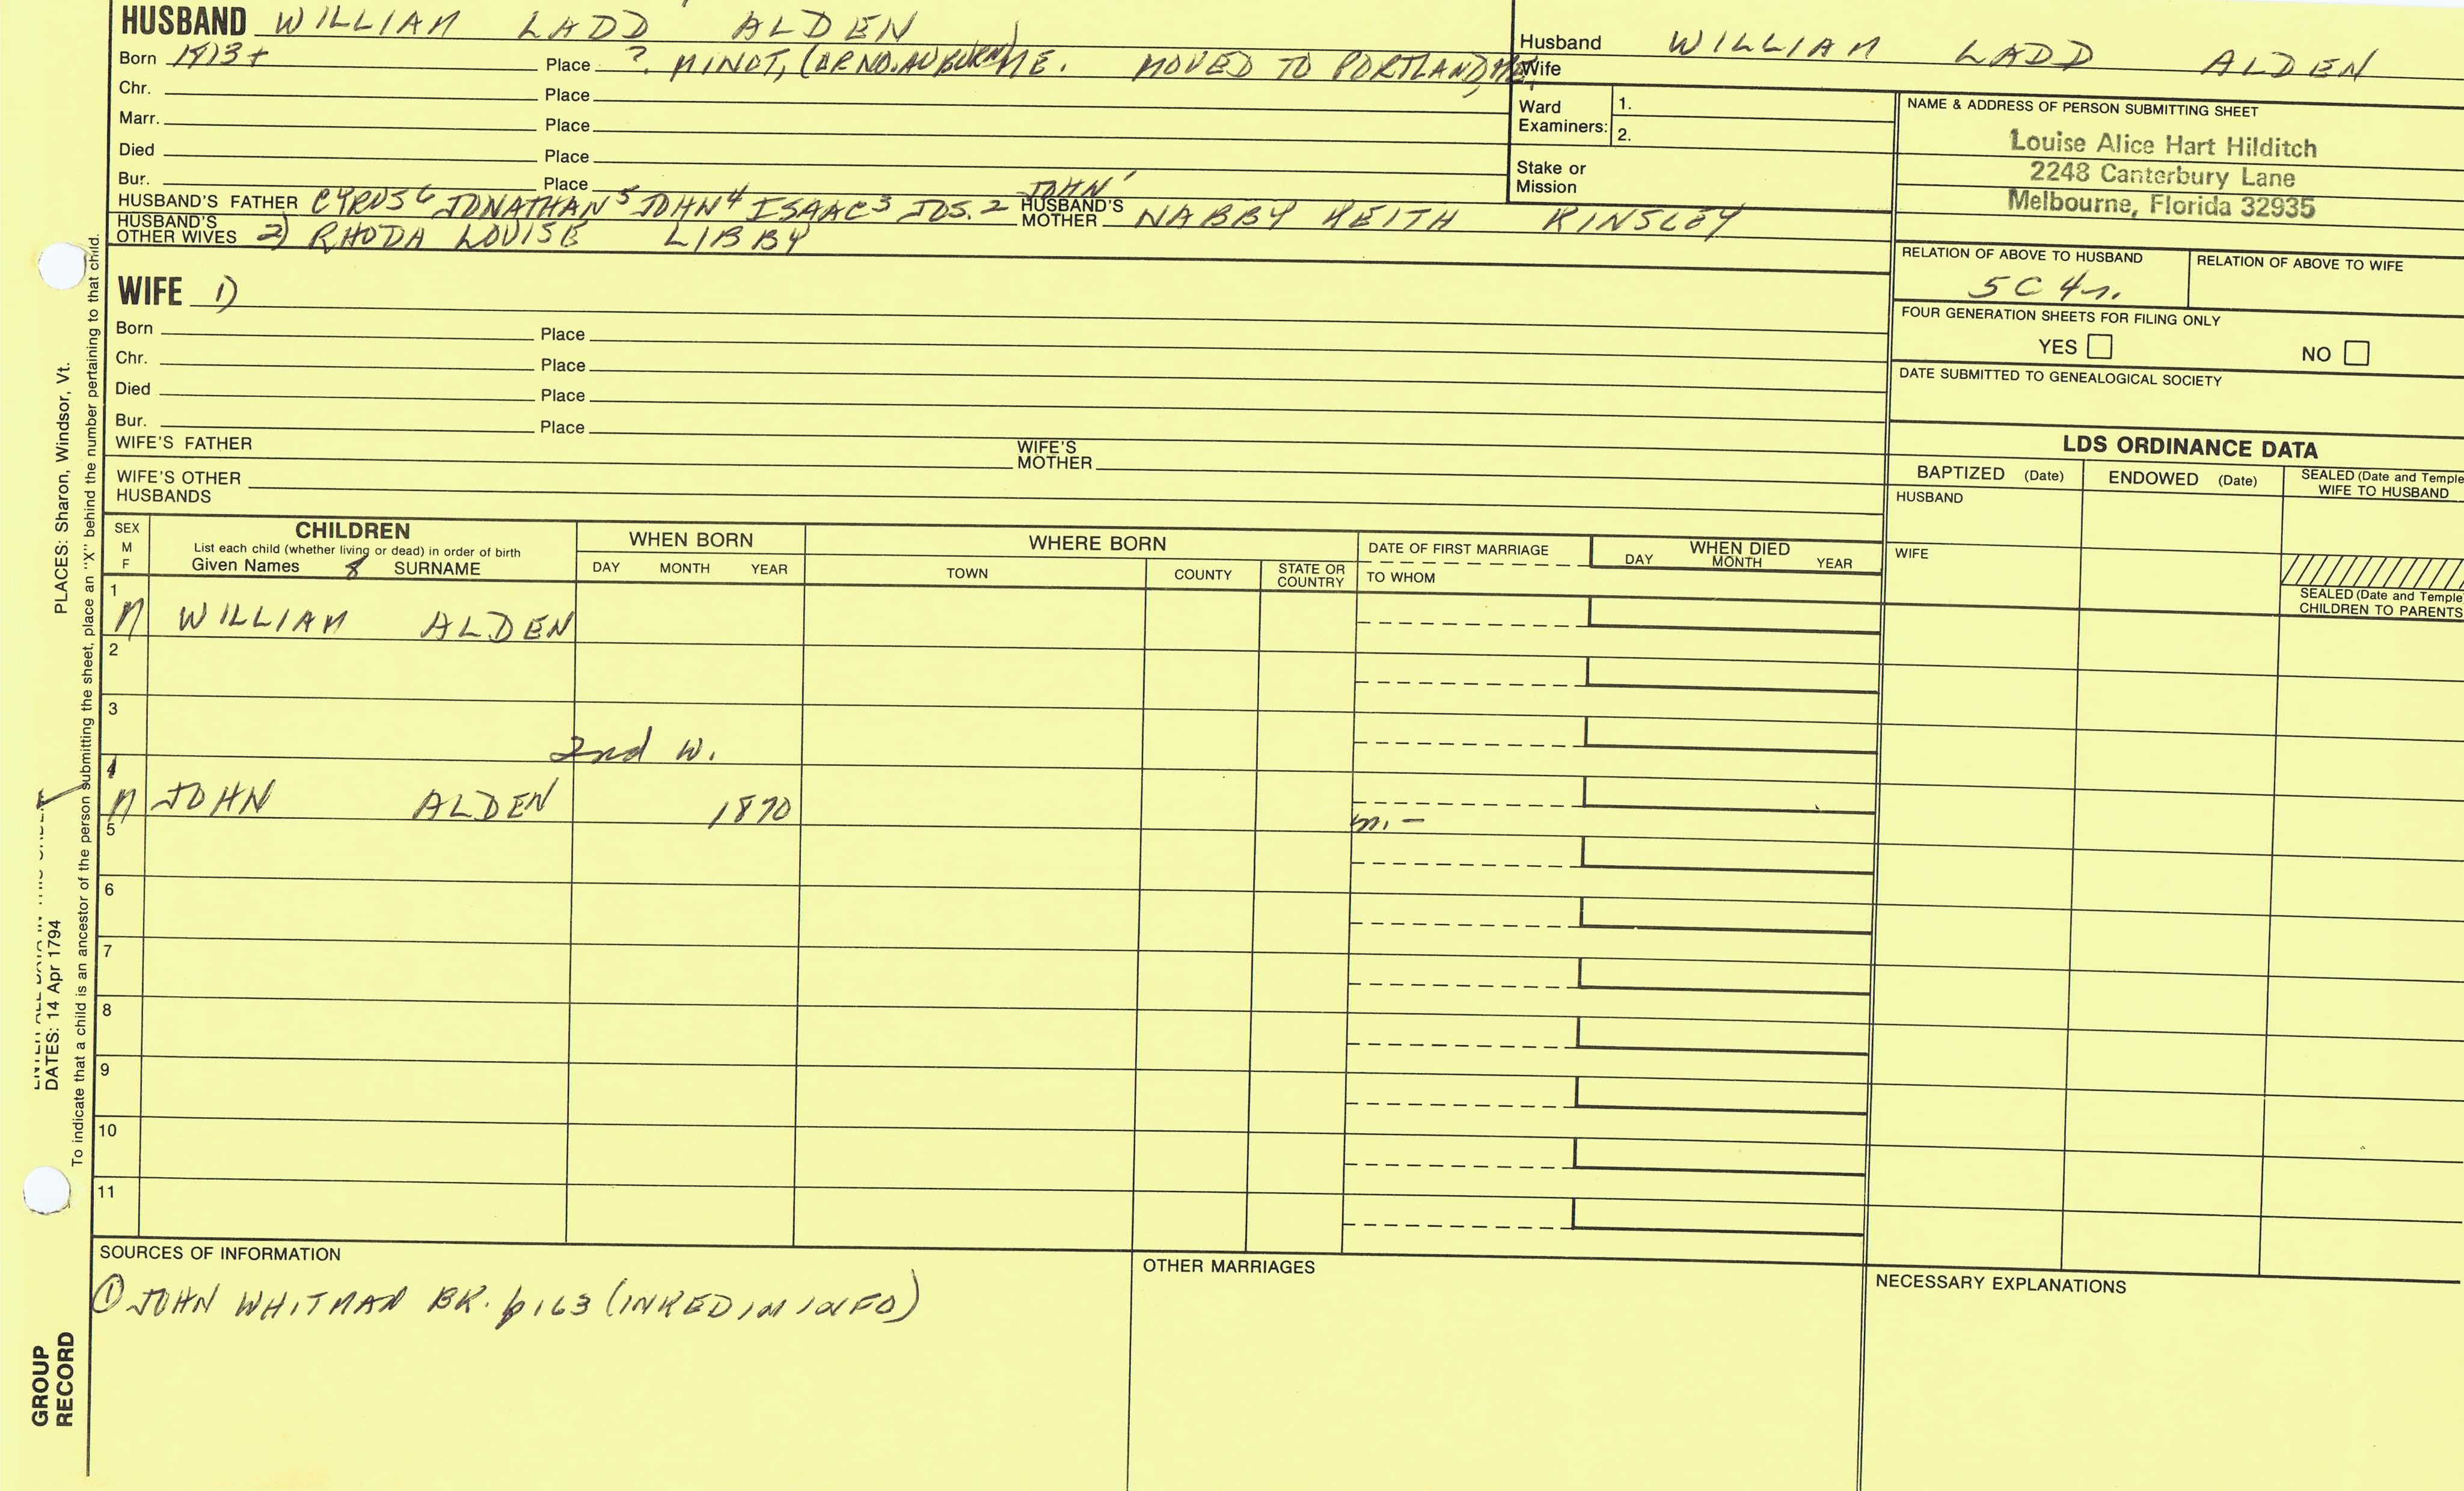 HUSBAND WILLIAM LADD ALDEN
Born 1813+ Place ?. MINOT, (OR NO. AUBURN) ME. MOVED TO PORTLAND, ME.
Chr. Place
Marr. Place
Died Place
Bur. Place
HUSBAND'S FATHER CYRUS 6 JONATHAN 5 JOHN 4 ISAAC 3 JOS. 2 JOHN 1 HUSBAND'S MOTHER NABBY KEITH KINSLEY
HUSBAND'S OTHER WIVES 2) RHODA LOUISE LIBBY
Husband WILLIAM LADD ALDEN
Wife
Ward Examiners: 1.
2.
Stake or Mission
NAME & ADDRESS OF PERSON SUBMITTING SHEET
Louise Alice Hart Hilditch
2248 Canterbury Lane
Melbourne, Florida 32935
RELATION OF ABOVE TO HUSBAND RELATION OF ABOVE TO WIFE
5C 4r.
FOUR GENERATION SHEETS FOR FILING ONLY
YES NO
DATE SUBMITTED TO GENEALOGICAL SOCIETY
WIFE 1)
Born Place
Chr. Place
Died Place
Bur. Place
WIFE'S FATHER WIFE'S MOTHER
WIFE'S OTHER HUSBANDS
LDS ORDINANCE DATA
BAPTIZED (Date) ENDOWED (Date) SEALED (Date and Temple
WIFE TO HUSBAND
HUSBAND
WIFE
SEALED (Date and Temple
CHILDREN TO PARENTS
SEX M F CHILDREN WHEN BORN WHERE BORN DATE OF FIRST MARRIAGE WHEN DIED
List each child (whether living or dead) in order of birth
Given Names 8 SURNAME DAY MONTH YEAR TOWN COUNTY STATE OR COUNTRY TO WHOM DAY MONTH YEAR
1
M WILLIAM ALDEN
2
3
2nd W.
4
M JOHN ALDEN 1870
5 m. –
6
7
8
9
10
11
SOURCES OF INFORMATION
① JOHN WHITMAN BK. p163 (INKED IN INFO)
OTHER MARRIAGES
NECESSARY EXPLANATIONS
To indicate that a child is an ancestor of the person submitting the sheet, place an "X" behind the number pertaining to that child.
PLACES: Sharon, Windsor, Vt.
DATES: 14 Apr 1794
ENTER ALL DATA IN THIS ORDER:
GROUP
RECORD